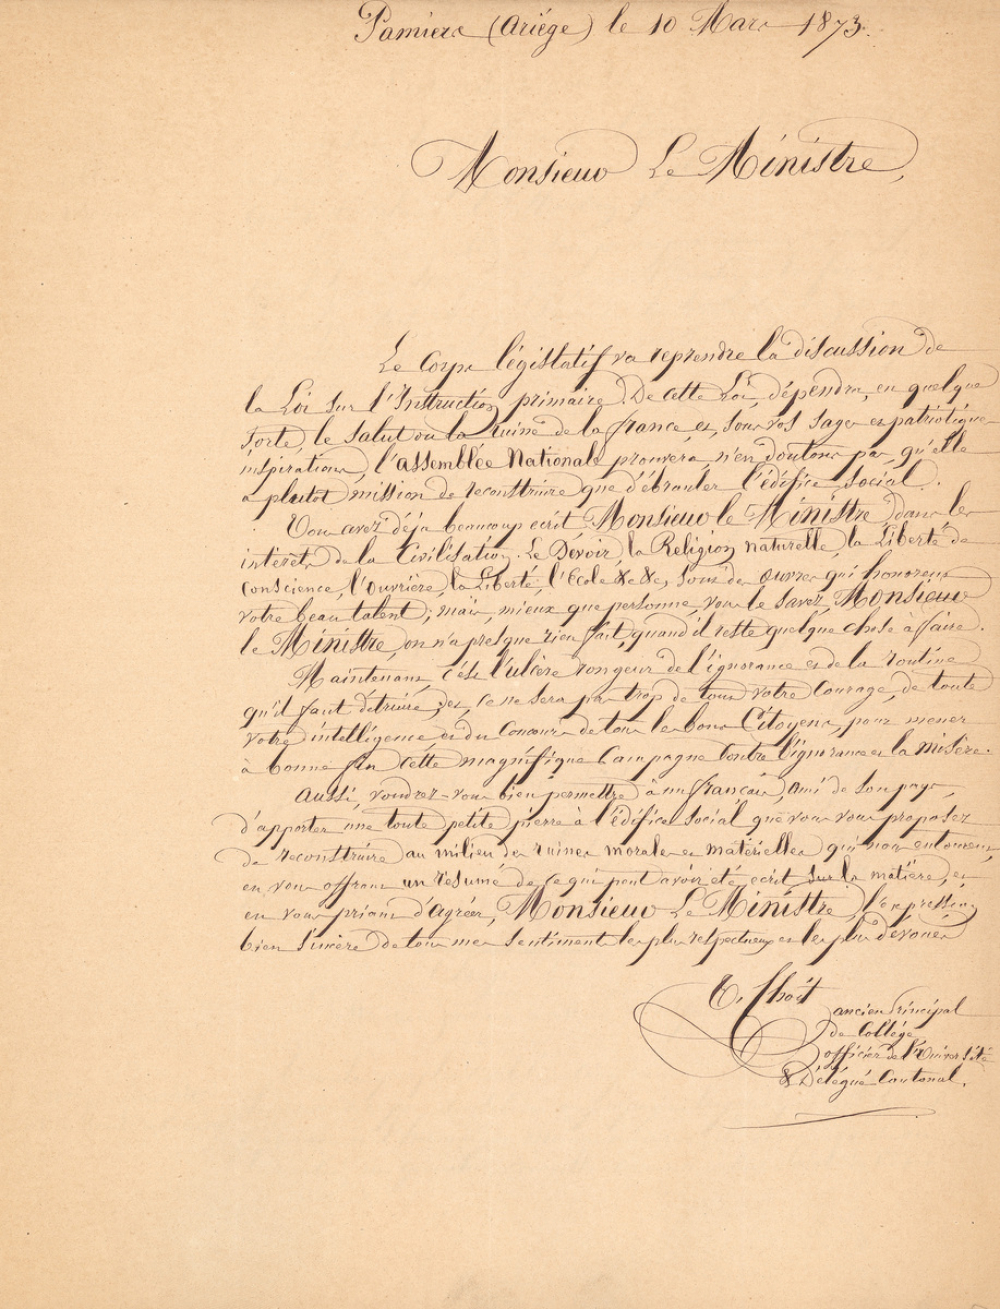 Pamiers (Ariége) le 10 Mars 1873.
Monsieur Le Ministre,
Le Corps législatif va reprendre la discussion de
la Loi sur l'Instruction primaire. De cette Loi, dépendra, en quelque
sorte, le salut ou la ruine de la france, et, sous vos sages et patriotiques
inspirations, l'assemblée Nationale prouvera, n'en doutons pas, qu'elle
a plutot mission de reconstruire que d'ébranler l'édifice social.
Vous avez déja beaucoup ecrit, Monsieur le Ministre, dans les
intérêts de la Civilisation. Le Devoir, la Religion naturelle, la Liberté de
conscience, l'ouvrière, la Liberté, l'Ecole &c &c, sont des œuvres qui honorent
votre beau talent; mais, mieux que personne, vous le savez, Monsieur
le Ministre, on n'a presque rien fait, quand il reste quelque chose à faire.
Maintenant, c'est l'ulcère rongeur de l'ignorance et de la routine
qu'il faut détruire, et, ce ne sera pas trop de tout votre Courage, de toute
votre intelligence et du Concours de tous les bons Citoyens, pour mener
à bonne fin cette magnifique Campagne contre l'ignorance et la misère.
Aussi, voudrez-vous bien permettre à un français, ami de son pays,
d'apporter une toute petite pierre à l'édifice social que vous vous proposez
de reconstruire au milieu des ruines morales et matérielles qui nous entourent,
en vous offrant un résumé de ce qui peut avoir été ecrit sur la matière, et
en vous priant d'agréer, Monsieur Le Ministre, l'expression
bien sincère de tous mes sentiments les plus respectueux et les plus dévoués
ancien Principal
de Collége,
officier de l'Université
& Délégué Cantonal.